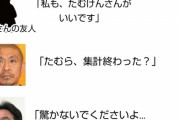 「私も、たむけんさんが
いいです」
さんの友人
「たむら、集計終わった？」
「驚かないでくださいよ…